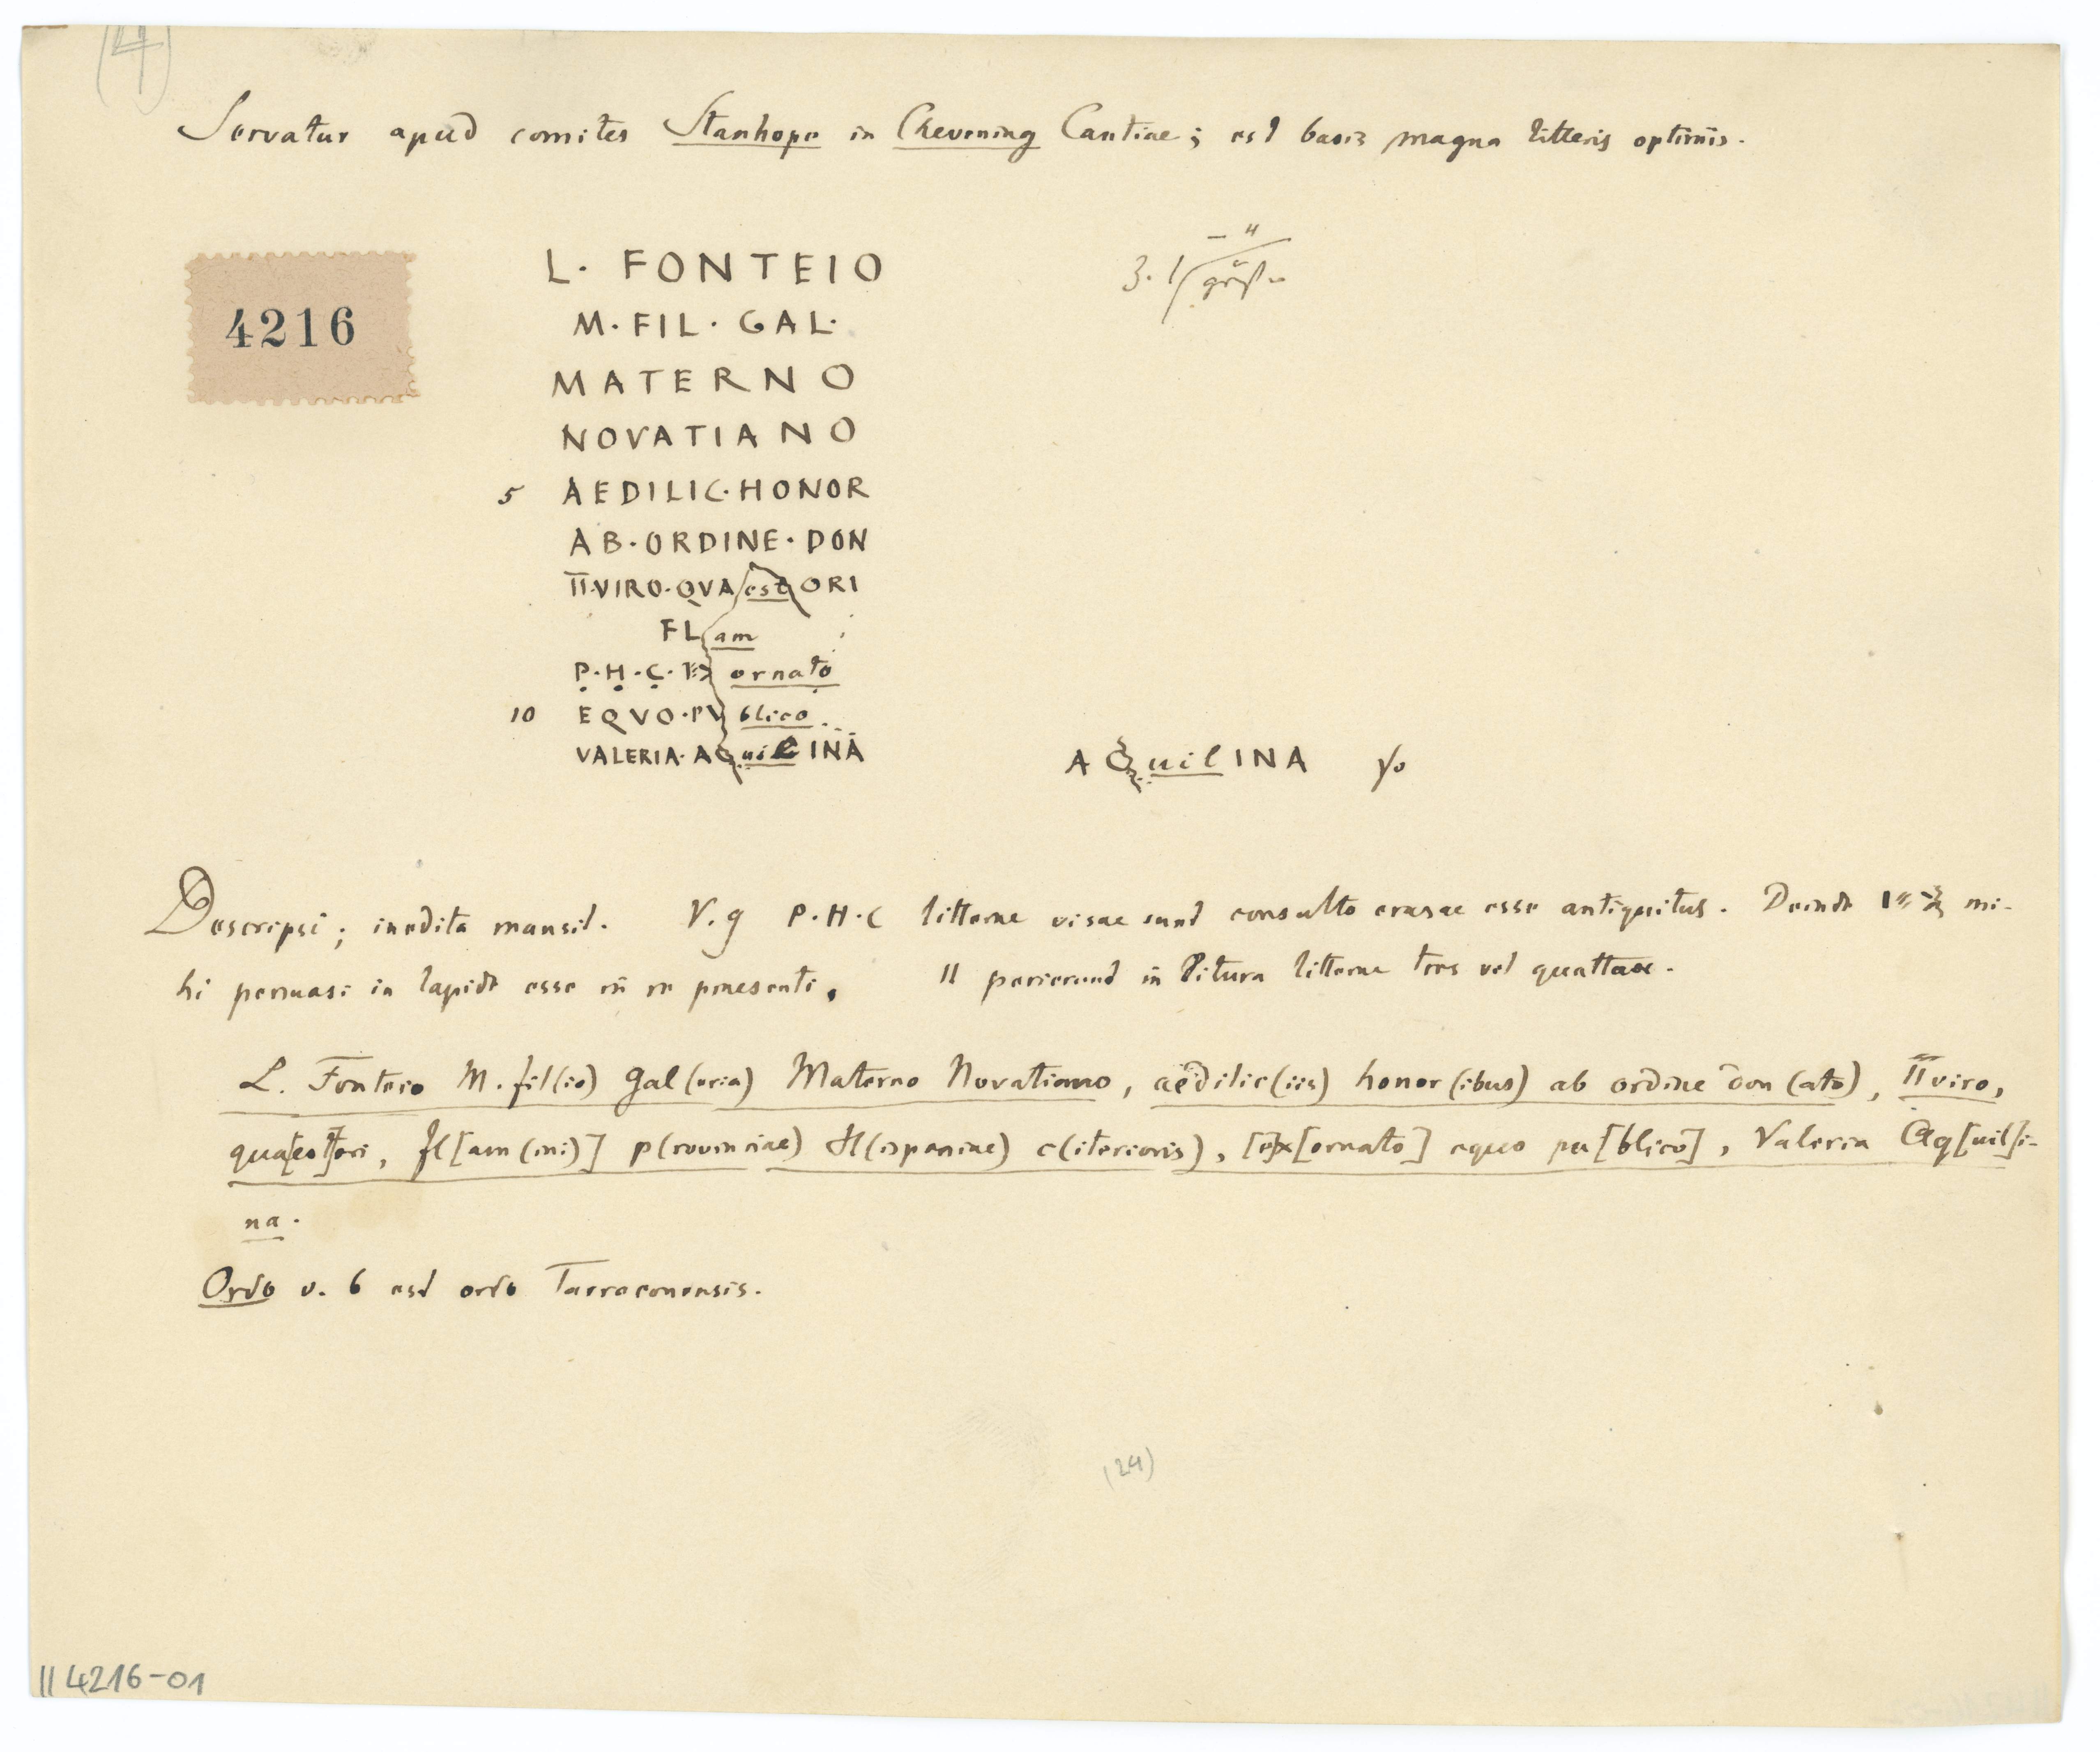 (4)
Servatur apud comites Stanhope in Chevening Cantiae; est basis magna litteris optimis.
4216
L. FONTEIO
3. 1 größer
M·FIL·GAL·
MATERNO
NOVATIANO
5 AEDILIC·HONOR
AB·ORDINE·DON
II·VIRO·QVAestORI
FLam
P·H·C·EXornato
10 EQVO·PVblico
VALERIA·AQuilINA
AQuilINA
Descripsi; inedita mansit. V. 9 P·H·C litterae visae sunt consulto erasae esse antiquitus. Deinde mi-
hi persuasi in lapide esse in re praesenti. 11 perierunt in litura litterae tres vel quattuor.
L. Fonteio M. fil(io) Gal(eria) Materno Novatiano, aedilic(iis) honor(ibus) ab ordine don(ato), IIviro,
qua[est]ori, fl[am(ini)] p(rovinciae) H(ispaniae) c(iterioris), [e]x[ornato] equo pu[blico], Valeria Aq[uil]i-
na.
Ordo v. 6 est ordo Tarraconensis.
(24)
II 4216-01